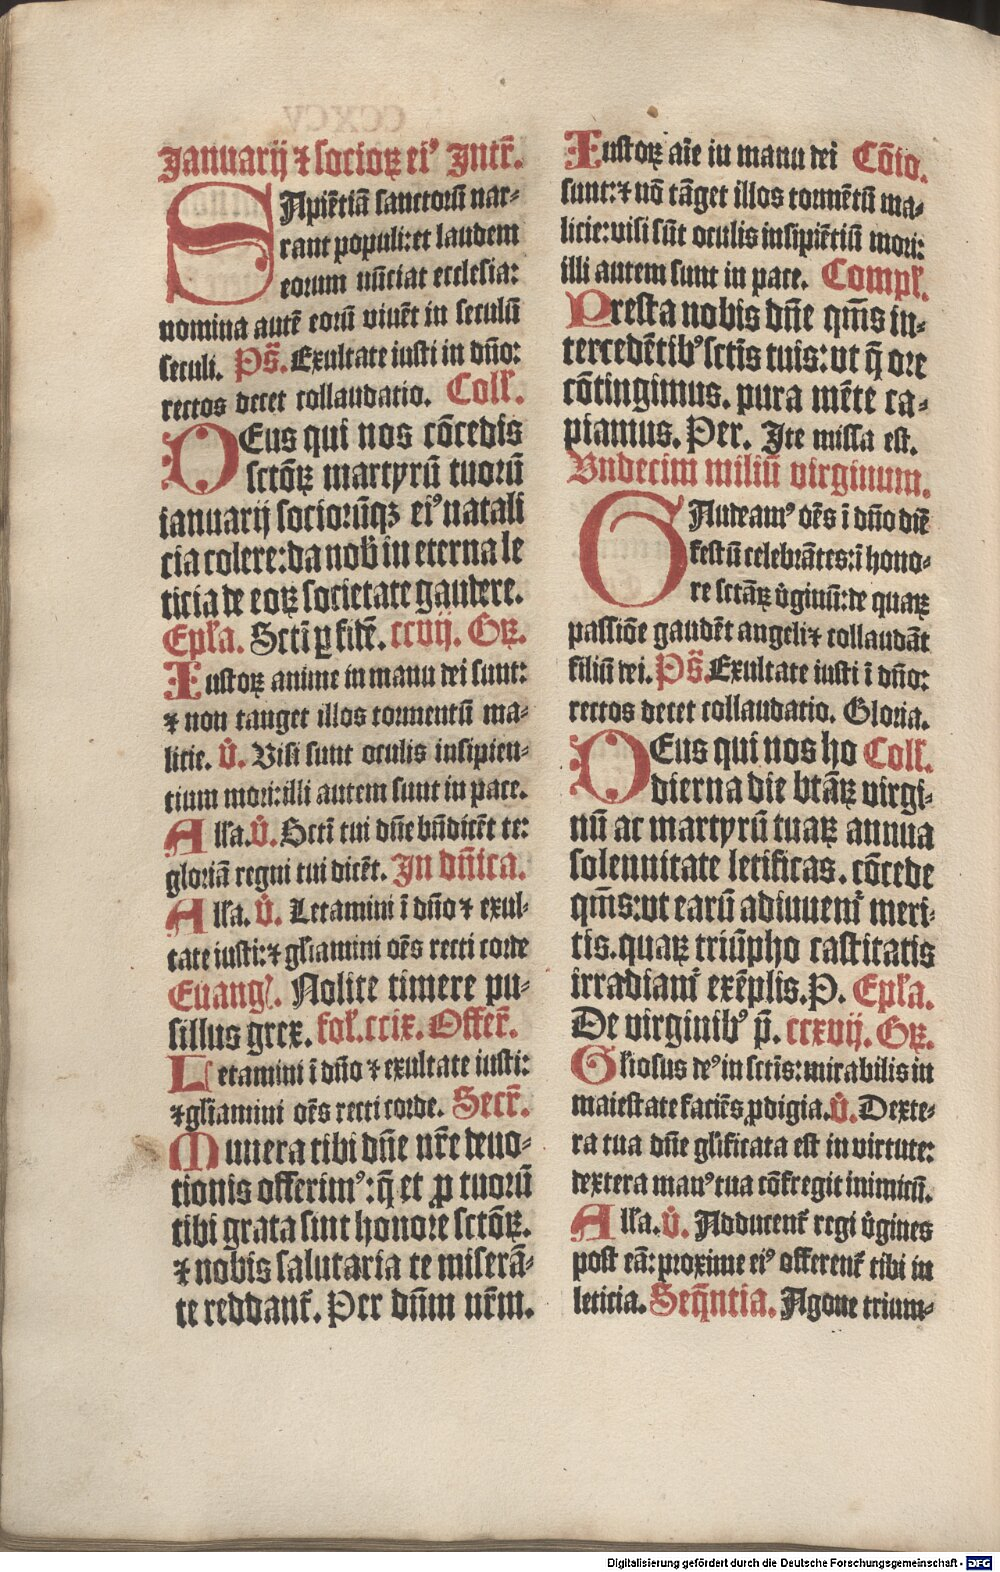 Januarij ⁊ socioꝝ eiꝰ Intr̄.
SApiētiā sanctorū nar⸗
rant populi: et laudem
eorum nūciat ecclesia:
nomina autē eorū viuēt in seculū
seculi. Ps̄. Exultate iusti in dn̄o:
rectos decet collaudatio. Coll̄.
DEus qui nos cōcedis
sctōꝝ martyrū tuorū
ianuarij sociorūqꝫ eiꝰ natali
cia colere: da nob̄ in eterna le
ticia de eoꝝ societate gaudere.
Epl̄a. Scti ꝑ fidē. ccvij. Gꝝ.
Iustoꝝ anime in manu dei sunt:
⁊ non tanget illos tormentū ma⸗
licie. V̄. Visi sunt oculis insipien⸗
tium mori: illi autem sunt in pace.
All̄a. V̄. Scti tui dn̄e bn̄dicēt te:
gloriā regni tui dicēt. In dn̄ica.
All̄a. V̄. Letamini ī dn̄o ⁊ exul⸗
tate iusti: ⁊ gl̄iamini oēs recti corde
Euangl̄. Nolite timere pu⸗
sillus grex. fol̄. ccix. Offer̄.
Letamini ī dn̄o ⁊ exultate iusti:
⁊ gl̄iamini oēs recti corde. Secr̄.
Munera tibi dn̄e nr̄e deuo⸗
tionis offerimꝰ: q̄ et ꝓ tuorū
tibi grata sint honore sctōꝝ.
⁊ nobis salutaria te miserā⸗
te reddant̄. Per dn̄m nr̄m.
Iustoꝝ aīe in manu dei Cōio.
sunt: ⁊ nō tāget illos tormētū ma⸗
licie: visi sūt oculis insipiētiū mori:
illi autem sunt in pace. Compl̄.
Presta nobis dn̄e qm̄s in⸗
tercedētibꝰ sctīs tuis: vt q̄ ore
cōtingimus. pura mēte ca⸗
piamus. Per. Ite missa est.
Vndecim miliū virginum.
GAudeamꝰ oēs ī dn̄o diē
festū celebrātes: ī hono⸗
re sctāꝝ v̄ginū: de quaꝝ
passiōe gaudēt angeli ⁊ collaudāt
filiū dei. Ps̄. Exultate iusti ī dn̄o:
rectos decet collaudatio. Gloria.
DEus qui nos ho Coll̄.
dierna die btāꝝ virgi⸗
nū ac martyrū tuaꝝ annua
solennitate letificas. cōcede
qm̄s: vt earū adiuuem̄ meri⸗
tis. quaꝝ triūpho castitatis
irradiam̄ exēplis. P. Epl̄a.
De virginibꝰ p̄. ccxvij. Gꝝ.
Gl̄iosus deꝰ in sctīs: mirabilis in
maiestate faciēs ꝓdigia. V̄. Dexte⸗
ra tua dn̄e gl̄ificata est in virtute:
dextera manꝰ tua cōfregit inimicū.
All̄a. V̄. Adducent̄ regi v̄gines
post eā: proxime eiꝰ offerent̄ tibi in
leticia. Seq̄ntia. Agone trium⸗
Digitalisierung gefördert durch die Deutsche Forschungsgemeinschaft - DFG